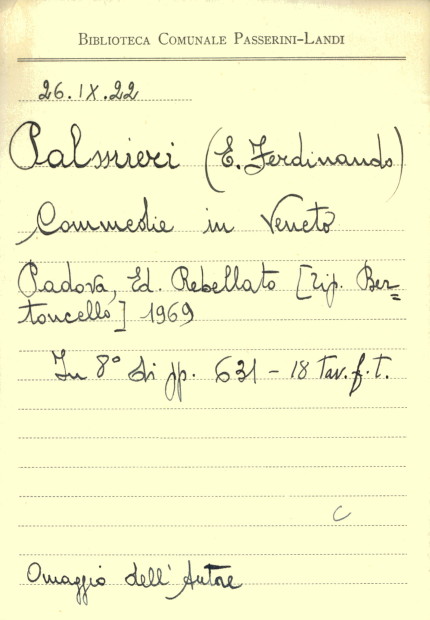 BIBLIOTECA COMUNALE PASSERINI-LANDI
26.IX.22
Palmieri (E. Ferdinando)
Commedie in Veneto
Padova, Ed. Rebellato [Tip. Ber=
toncello] 1969
In 8° di pp. 631 - 18 tav. f. t.
C
Omaggio dell'Autore